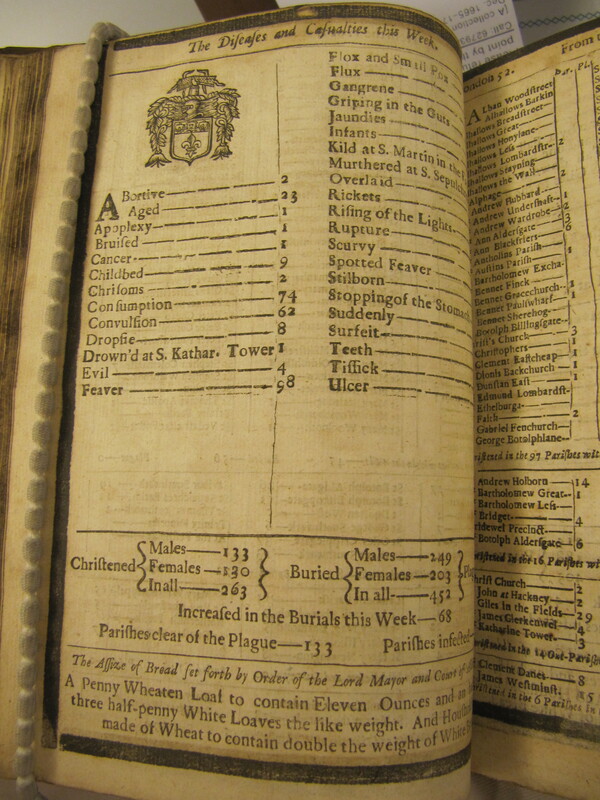 The Diſeaſes and Caſualties this Week.
Abortive 2
Aged 23
Apoplexy 1
Bruiſed 1
Cancer 1
Childbed 9
Chriſoms 2
Conſumption 74
Convulſion 62
Dropſie 8
Drown'd at S. Kathar. Tower 1
Evil 4
Feaver 98
Flox and Small Pox
Flux
Gangrene
Griping in the Guts
Jaundies
Infants
Kild at S. Martin in the
Murthered at S. Sepulch
Overlaid
Rickets
Riſing of the Lights
Rupture
Scurvy
Spotted Feaver
Stilborn
Stopping of the Stomach
Suddenly
Surfeit
Teeth
Tiſſick
Ulcer
Chriſtened { Males 133 Females 130 In all 263 }
Buried { Males 249 Females 203 In all 452 }
Increaſed in the Burials this Week 68
Pariſhes clear of the Plague 133 Pariſhes infected
The Aſſize of Bread ſet forth by Order of the Lord Mayor and Court of
A Penny Wheaten Loaf to contain Eleven Ounces and an
three half-penny White Loaves the like weight. And Houſ
made of Wheat to contain double the weight of White
From
ondon 52.
Bur. Pl.
Alban Woodſtreet
Alhallows Barkin
hallows Breadſtreet
hallows Great
hallows Honylane
hallows Leſs 2
hallows Lombardſtr
hallows Stayning
hallows the Wall 2
Alphage
Andrew Hubbard 1
Andrew Underſhaft 1
Andrew Wardrobe 2
Ann Alderſgate 3
Ann Blackfriers 6
Antholins Pariſh
Auſtins Pariſh 1
Bartholomew Excha.
Bennet Finck
Bennet Gracechurch 1
Bennet Paulſwharf 1
Bennet Sherehog
Botolph Billingſgate
riſt's Church 3
Chriſtophers 1
Clement Eaſtcheap 1
Dionis Backchurch 1
Dunſtan Eaſt 1
Edmund Lombardſt
Ethelburga
Faith 2
Gabriel Fenchurch
George Botolphlane
riſtened in the 97 Pariſhes wit
Andrew Holborn 14
Bartholomew Great 1
Bartholomew Leſs
Bridget 4
ridewel Precinct
Botolph Alderſgate 6
riſtened in the 16 Pariſhes wit
hriſt Church 2
John at Hackney 2
Giles in the Fields 29
James Clerkenwel 4
Katharine Tower 3
riſtened in the 14 Out-Pariſhes
Clement Danes 8
James Weſtminſt.
riſtened in the 6 Pariſhes in